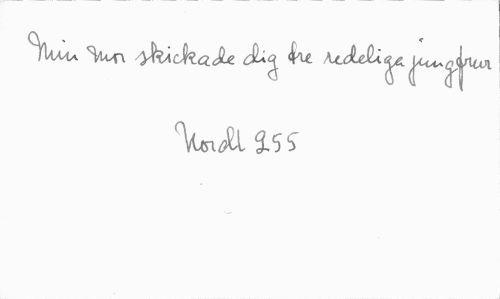 Min mor skickade dig tre redeliga jungfrur
Nordl 255